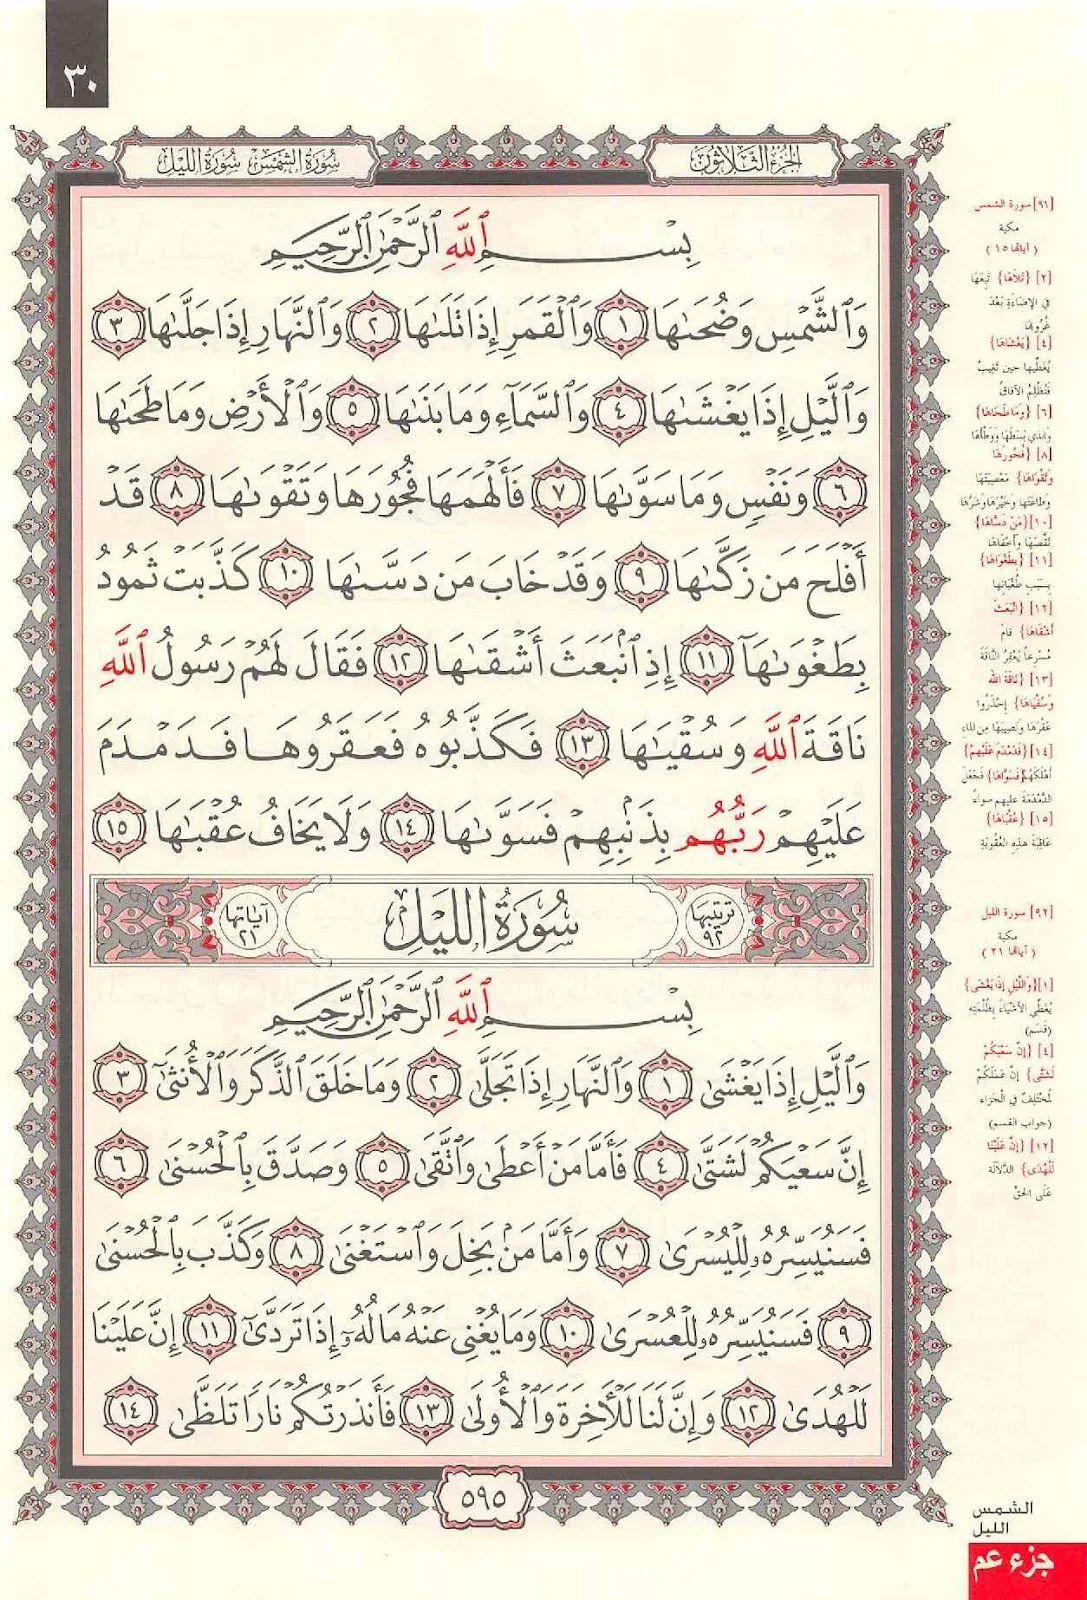 ٣٠
الجزء الثلاثون
سورة الشمس سورة الليل
بِسْمِ ٱللَّهِ ٱلرَّحْمَٰنِ ٱلرَّحِيمِ
وَٱلشَّمْسِ وَضُحَىٰهَا ١ وَٱلْقَمَرِ إِذَا تَلَىٰهَا ٢ وَٱلنَّهَارِ إِذَا جَلَّىٰهَا ٣
وَٱلَّيْلِ إِذَا يَغْشَىٰهَا ٤ وَٱلسَّمَآءِ وَمَا بَنَىٰهَا ٥ وَٱلْأَرْضِ وَمَا طَحَىٰهَا
٦ وَنَفْسٍ وَمَا سَوَّىٰهَا ٧ فَأَلْهَمَهَا فُجُورَهَا وَتَقْوَىٰهَا ٨ قَدْ
أَفْلَحَ مَن زَكَّىٰهَا ٩ وَقَدْ خَابَ مَن دَسَّىٰهَا ١٠ كَذَّبَتْ ثَمُودُ
بِطَغْوَىٰهَآ ١١ إِذِ ٱنۢبَعَثَ أَشْقَىٰهَا ١٢ فَقَالَ لَهُمْ رَسُولُ ٱللَّهِ
نَاقَةَ ٱللَّهِ وَسُقْيَٰهَا ١٣ فَكَذَّبُوهُ فَعَقَرُوهَا فَدَمْدَمَ
عَلَيْهِمْ رَبُّهُم بِذَنۢبِهِمْ فَسَوَّىٰهَا ١٤ وَلَا يَخَافُ عُقْبَٰهَا ١٥
ترتيبها ٩٢ سُورَةُ اللَّيْلِ آياتها ٢١
بِسْمِ ٱللَّهِ ٱلرَّحْمَٰنِ ٱلرَّحِيمِ
وَٱلَّيْلِ إِذَا يَغْشَىٰ ١ وَٱلنَّهَارِ إِذَا تَجَلَّىٰ ٢ وَمَا خَلَقَ ٱلذَّكَرَ وَٱلْأُنثَىٰٓ ٣
إِنَّ سَعْيَكُمْ لَشَتَّىٰ ٤ فَأَمَّا مَنْ أَعْطَىٰ وَٱتَّقَىٰ ٥ وَصَدَّقَ بِٱلْحُسْنَىٰ ٦
فَسَنُيَسِّرُهُۥ لِلْيُسْرَىٰ ٧ وَأَمَّا مَنۢ بَخِلَ وَٱسْتَغْنَىٰ ٨ وَكَذَّبَ بِٱلْحُسْنَىٰ
٩ فَسَنُيَسِّرُهُۥ لِلْعُسْرَىٰ ١٠ وَمَا يُغْنِى عَنْهُ مَالُهُۥٓ إِذَا تَرَدَّىٰٓ ١١ إِنَّ عَلَيْنَا
لَلْهُدَىٰ ١٢ وَإِنَّ لَنَا لَلْءَاخِرَةَ وَٱلْأُولَىٰ ١٣ فَأَنذَرْتُكُمْ نَارًا تَلَظَّىٰ ١٤
٥٩٥
[٩١] سورة الشمس
مكية
(آياتها ١٥)
[٢] {تَلَاهَا} تَبِعَهَا
في الإضاءَةِ بَعْدَ
غُرُوبِهَا
[٤] {يَغْشَاهَا}
يُغَطِّيهَا حين تَغِيبُ
فَتُظْلِمُ الآفاقُ
[٦] {وَمَا طَحَاهَا}
والذي بَسَطَهَا وَوَطَّأهَا
[٨] {فُجُورَهَا
وَتَقْوَاهَا} مَعْصِيَتَهَا
وطَاعَتَهَا وخَيْرَهَا وشَرَّهَا
[١٠] {مَنْ دَسَّاهَا}
نَقَّصَهَا وأَخْفَاهَا
[١١] {بِطَغْوَاهَا}
بسَبَبِ طُغْيَانِهَا
[١٢] {انْبَعَثَ
أَشْقَاهَا} قَامَ
مُسْرِعاً يَعْقِرُ النَّاقَةَ
[١٣] {نَاقَةَ الله
وَسُقْيَاهَا} إحْذَرُوا
عَقْرَهَا ونَصِيبَهَا مِن الماء
[١٤] {فَدَمْدَمَ عَلَيْهِمْ}
أَهْلَكَهُمْ {فَسَوَّاهَا} فَجَعَلَ
الدَّمْدَمَةَ عليهم سواءً
[١٥] {عُقْبَاهَا}
عَاقِبَةَ هذِهِ العُقُوبَةِ
[٩٢] سورة الليل
مكية
(آياتها ٢١)
[١] {وَاللَّيْلِ إِذَا يَغْشَى}
يُغَطِّي الأَشْيَاءَ بِظُلْمَتِهِ
(قَسَم)
[٤] {إِنَّ سَعْيَكُمْ
لَشَتَّى} إنَّ عَمَلَكُمْ
لَمُخْتَلِفٌ في الْجَزَاءِ
(جواب القسم)
[١٢] {إِنَّ عَلَيْنَا
لَلْهُدَى} الدَّلالَة
عَلَى الحَقِّ
الشمس
الليل
جزء عم